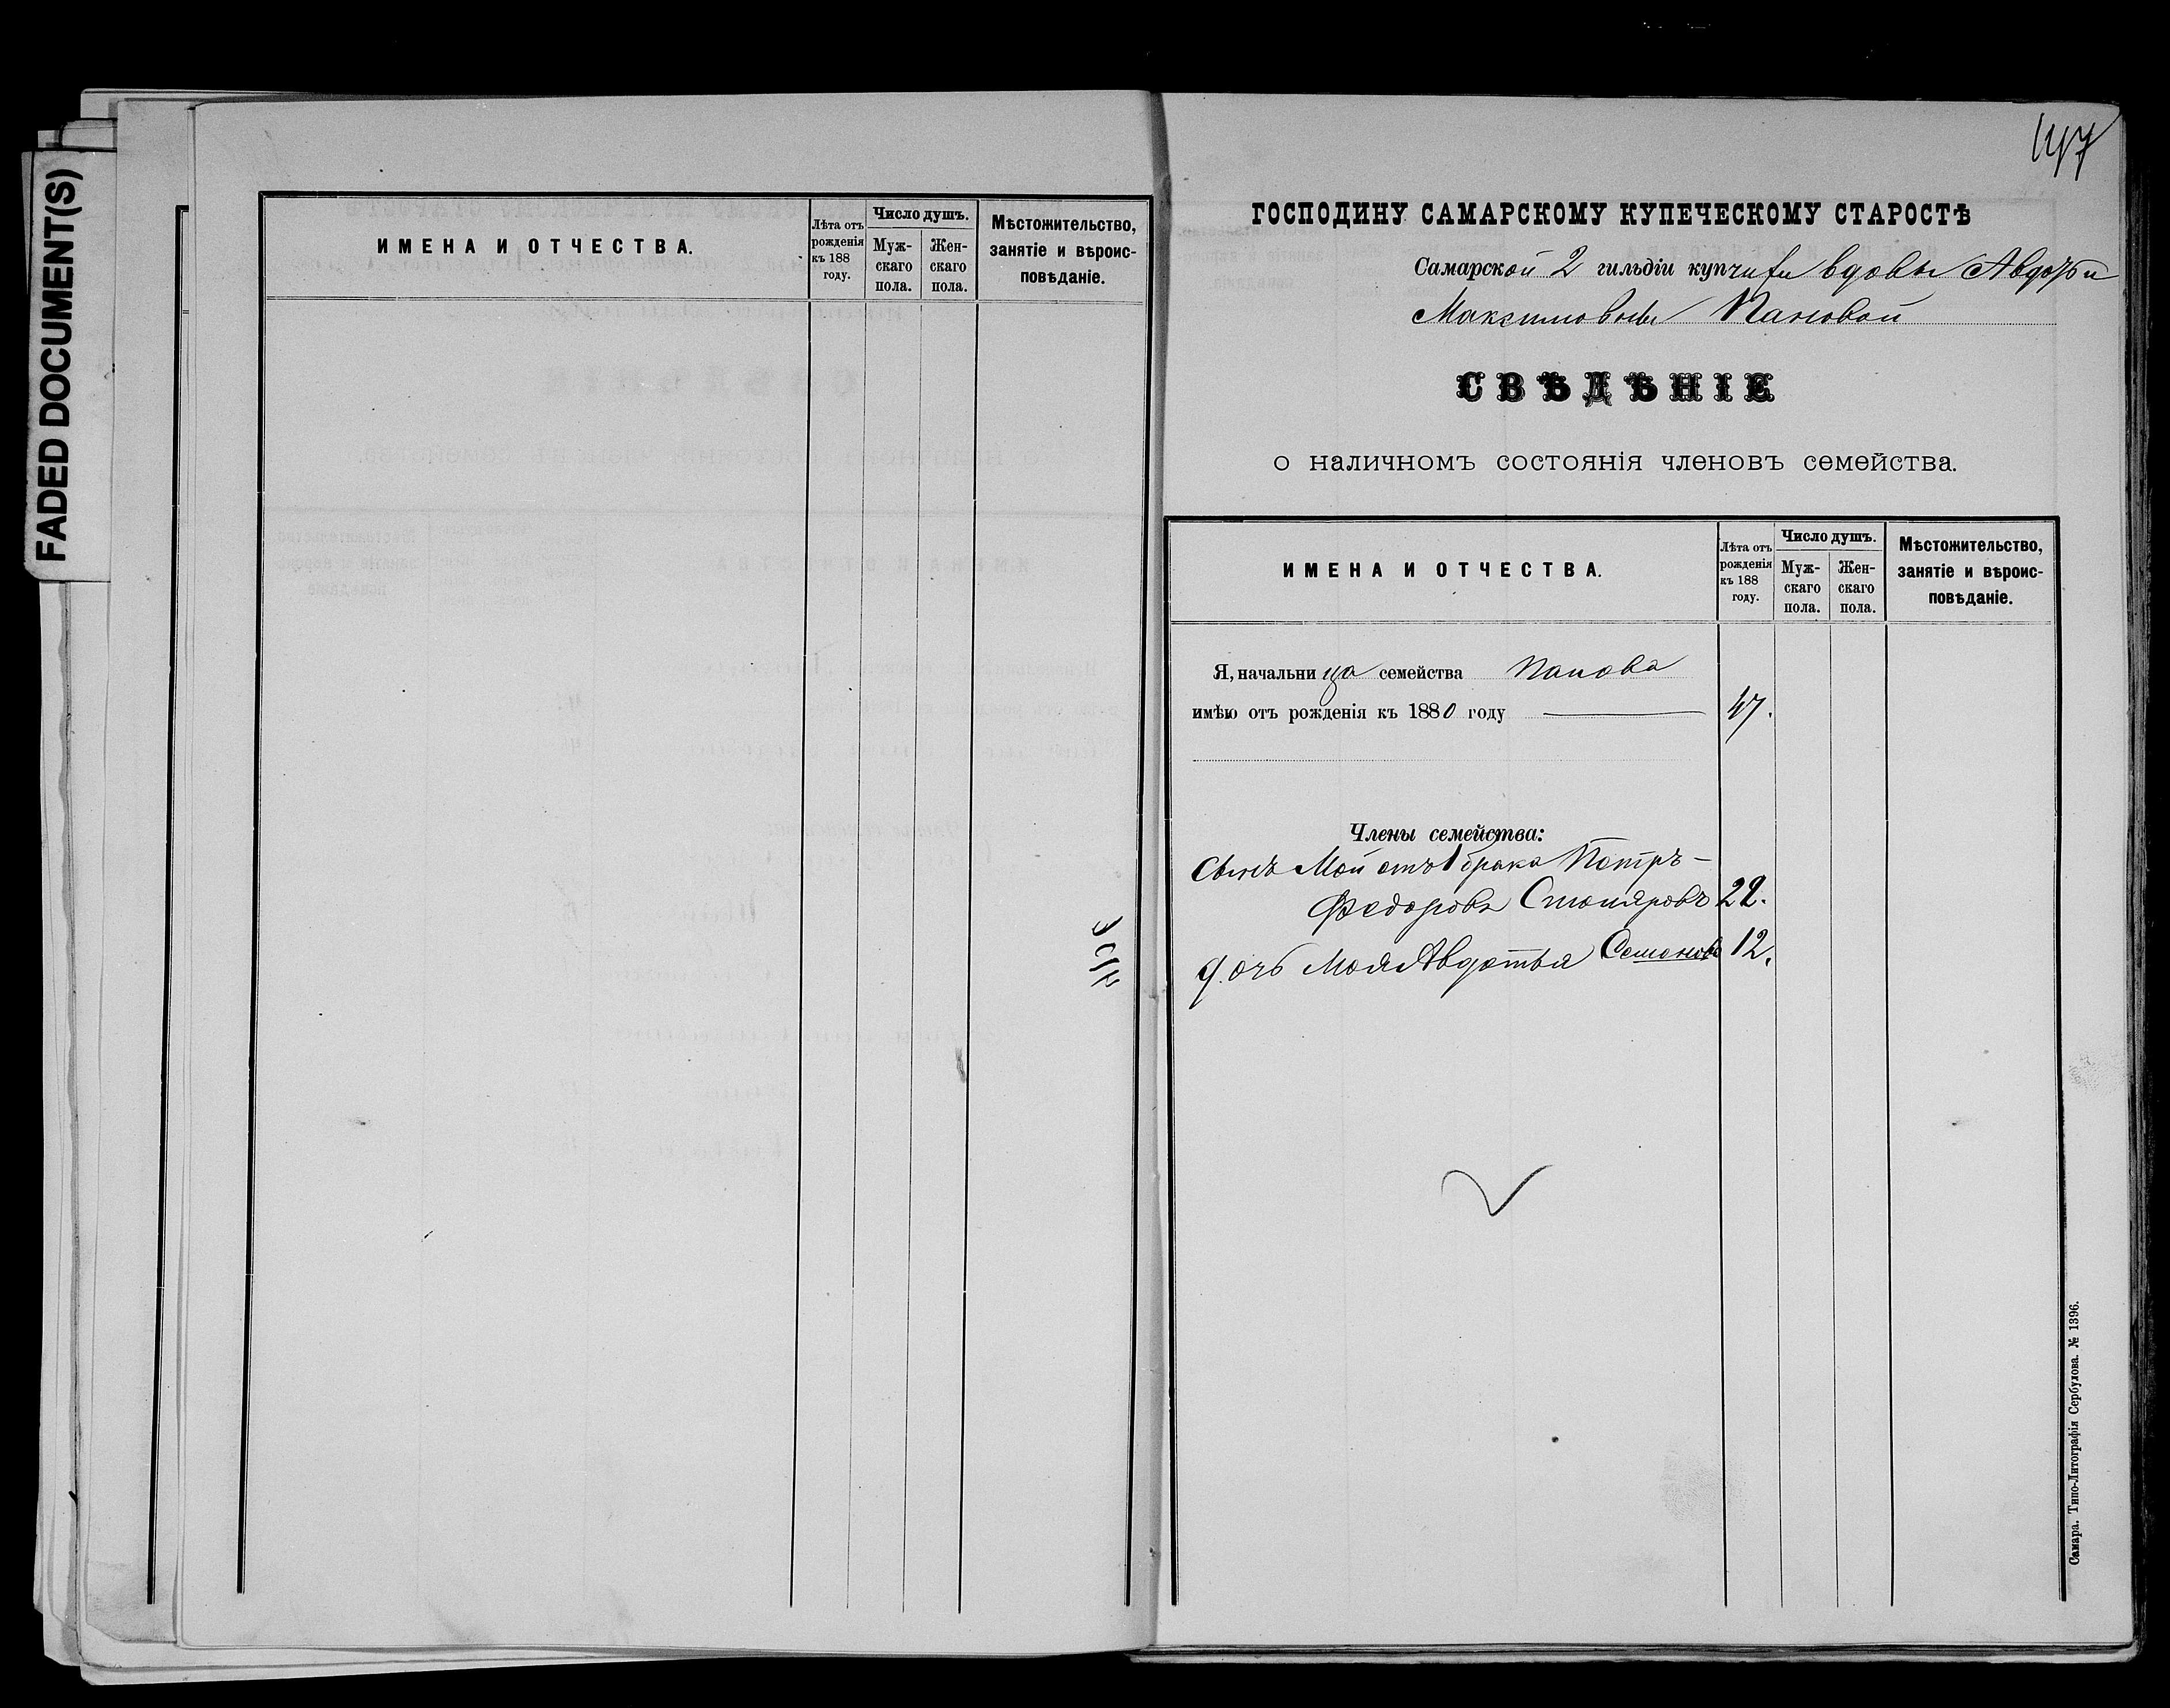 FADED DOCUMENT(S)
ИМЕНА И ОТЧЕСТВА.
Лѣта отъ
рожденія
къ 188
году.
Число душъ.
Муж-
скаго
пола.
Жен-
скаго
пола.
Мѣстожительство,
занятіе и вѣроис-
повѣданіе.
147
ГОСПОДИНУ САМАРСКОМУ КУПЕЧЕСКОМУ СТАРОСТѢ
Самарской 2 гильдіи купчихи вдовы Авдотьи
Максимовны Пановой
СВѢДѢНІЕ
о наличномъ состоянія членовъ семейства.
ИМЕНА И ОТЧЕСТВА.
Лѣта отъ
рожденія
къ 188
году.
Число душъ.
Муж-
скаго
пола.
Жен-
скаго
пола.
Мѣстожительство,
занятіе и вѣроис-
повѣданіе.
Я, начальница семейства Панова
имѣю отъ рожденія къ 1880 году 47.
Члены семейства:
Сынъ Мой отъ 1 брака Петръ –
Федоровъ 22.
дочь Моя Авдотья Семенова 12.
Самара. Типо-Литографія Сербулова. № 1396.